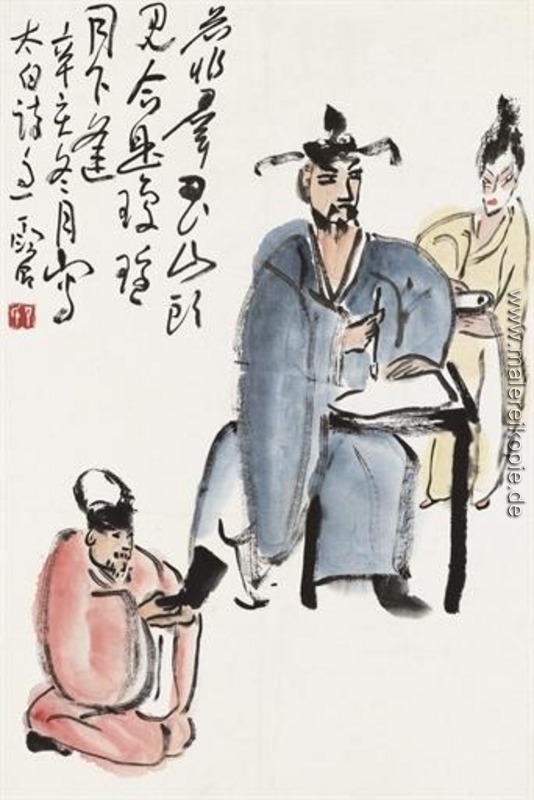 若非羣玉山頭
見合是瓊瑤
月下逢
辛亥冬月寫
太白詩意
www.malereikopie.de